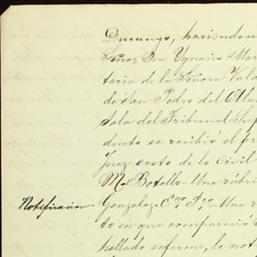 Durango, haciendo
Señor Don Ygnacio Mar
taria de la Señora Vala
de San Pedro del
tala del Tribunal Sup
ducto se recibió el pr
Juez esoto de lo Civil
M. Botello. Una rúbri
Notificacion. Gonzalez. Una
to en que compareció
hallado enfermo, le not